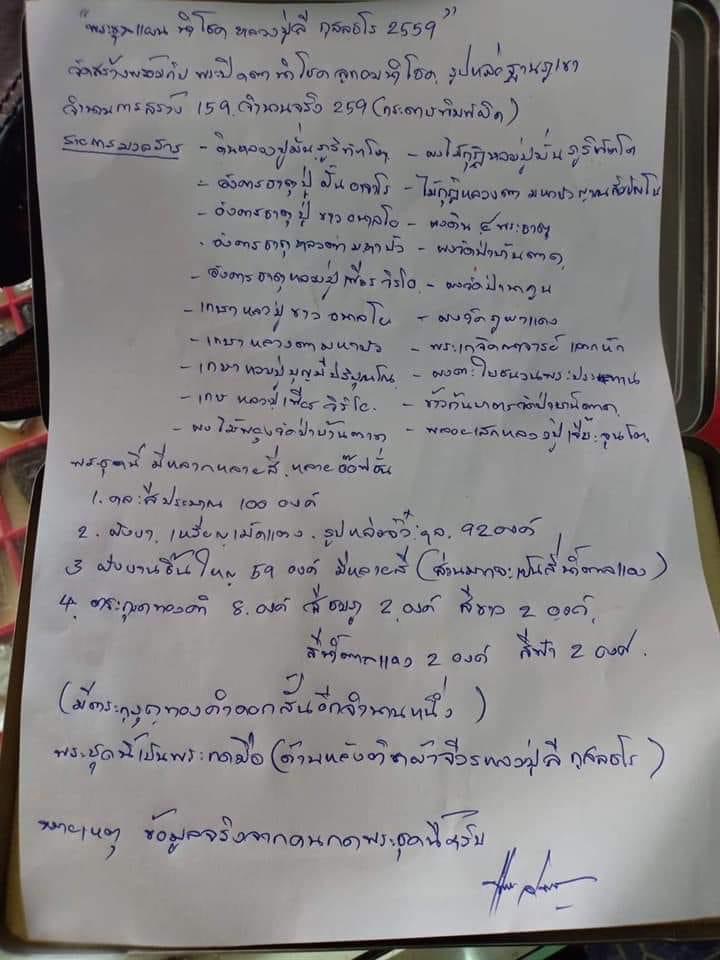 "พระขุนแผน นำโชค หลวงปู่ลี กุสลธโร 2559"
จัดสร้างพร้อมกับ พระปิดตา นำโชค ลูกอมนำโชค, รูปหล่อฐานภูเขา
จำนวนการสร้าง 159, จำนวนจริง 259 (กระดาษพิมพ์ผิด)
รายการมวลสาร - ดินหลวงปู่มั่น ภูริทัตโต - ผงไม้กุฏิหลวงปู่มั่น ภูริทัตโต
- อังคารธาตุปู่ มั่น - ไม้กุฏิหลวงตา มหาบัว ญาณสัมปันโน
- อังคารธาตุ ปู่ ขาว อนาลโย - ผงดิน ๔ พระธาตุ
- อังคารธาตุ หลวงตา มหาบัว - ผงวัดป่าบ้านตาด
- อังคารธาตุ หลวงปู่ เพียร วิริโย - ผงวัดป่านาคูน
- เกษา หลวงปู่ ขาว อนาลโย - ผงวัด ภูผาแดง
- เกษา หลวงตา มหาบัว - พระเกจิคณาจารย์
- เกษา หลวงปู่ บุญมี ปริปุณโณ - ผงตะไบชนวนพระประธาน
- เกษา หลวงปู่ เพียร วิริโย - ข้าวก้นบาตรวัดป่าบ้านตาด
- ผงไม้พยุงวัดป่าบ้านตาด - พลอยเสกหลวงปู่เจี๊ยะ จุนโท
พระชุดนี้ มีหลากหลายสี หลายอ๊อฟชั่น
1. คละสีประมาณ 100 องค์
2. ฝังยา, เหรียญเม็ดแตง, รูปหล่อจิ๋ว 92 องค์
3. ฝังบานชื้นใหญ่ 59 องค์ มีหลายสี (ส่วนมากจะเป็นสีน้ำตาลแดง)
4. ตระกรุดทองคำ 8 องค์ สีชมพู 2 องค์ สีขาว 2 องค์,
สีน้ำตาลแดง 2 องค์ สีฟ้า 2 องค์.
(มีตระกรุดทองคำดอกสั้นอีกจำนวนหนึ่ง)
พระชุดนี้เป็นพระกดมือ (ด้านหลังติดผ้าจีวรหลวงปู่ลี กุสลธโร)
หมายเหตุ ข้อมูลจริงจากคนกดพระชุดนี้ครับ